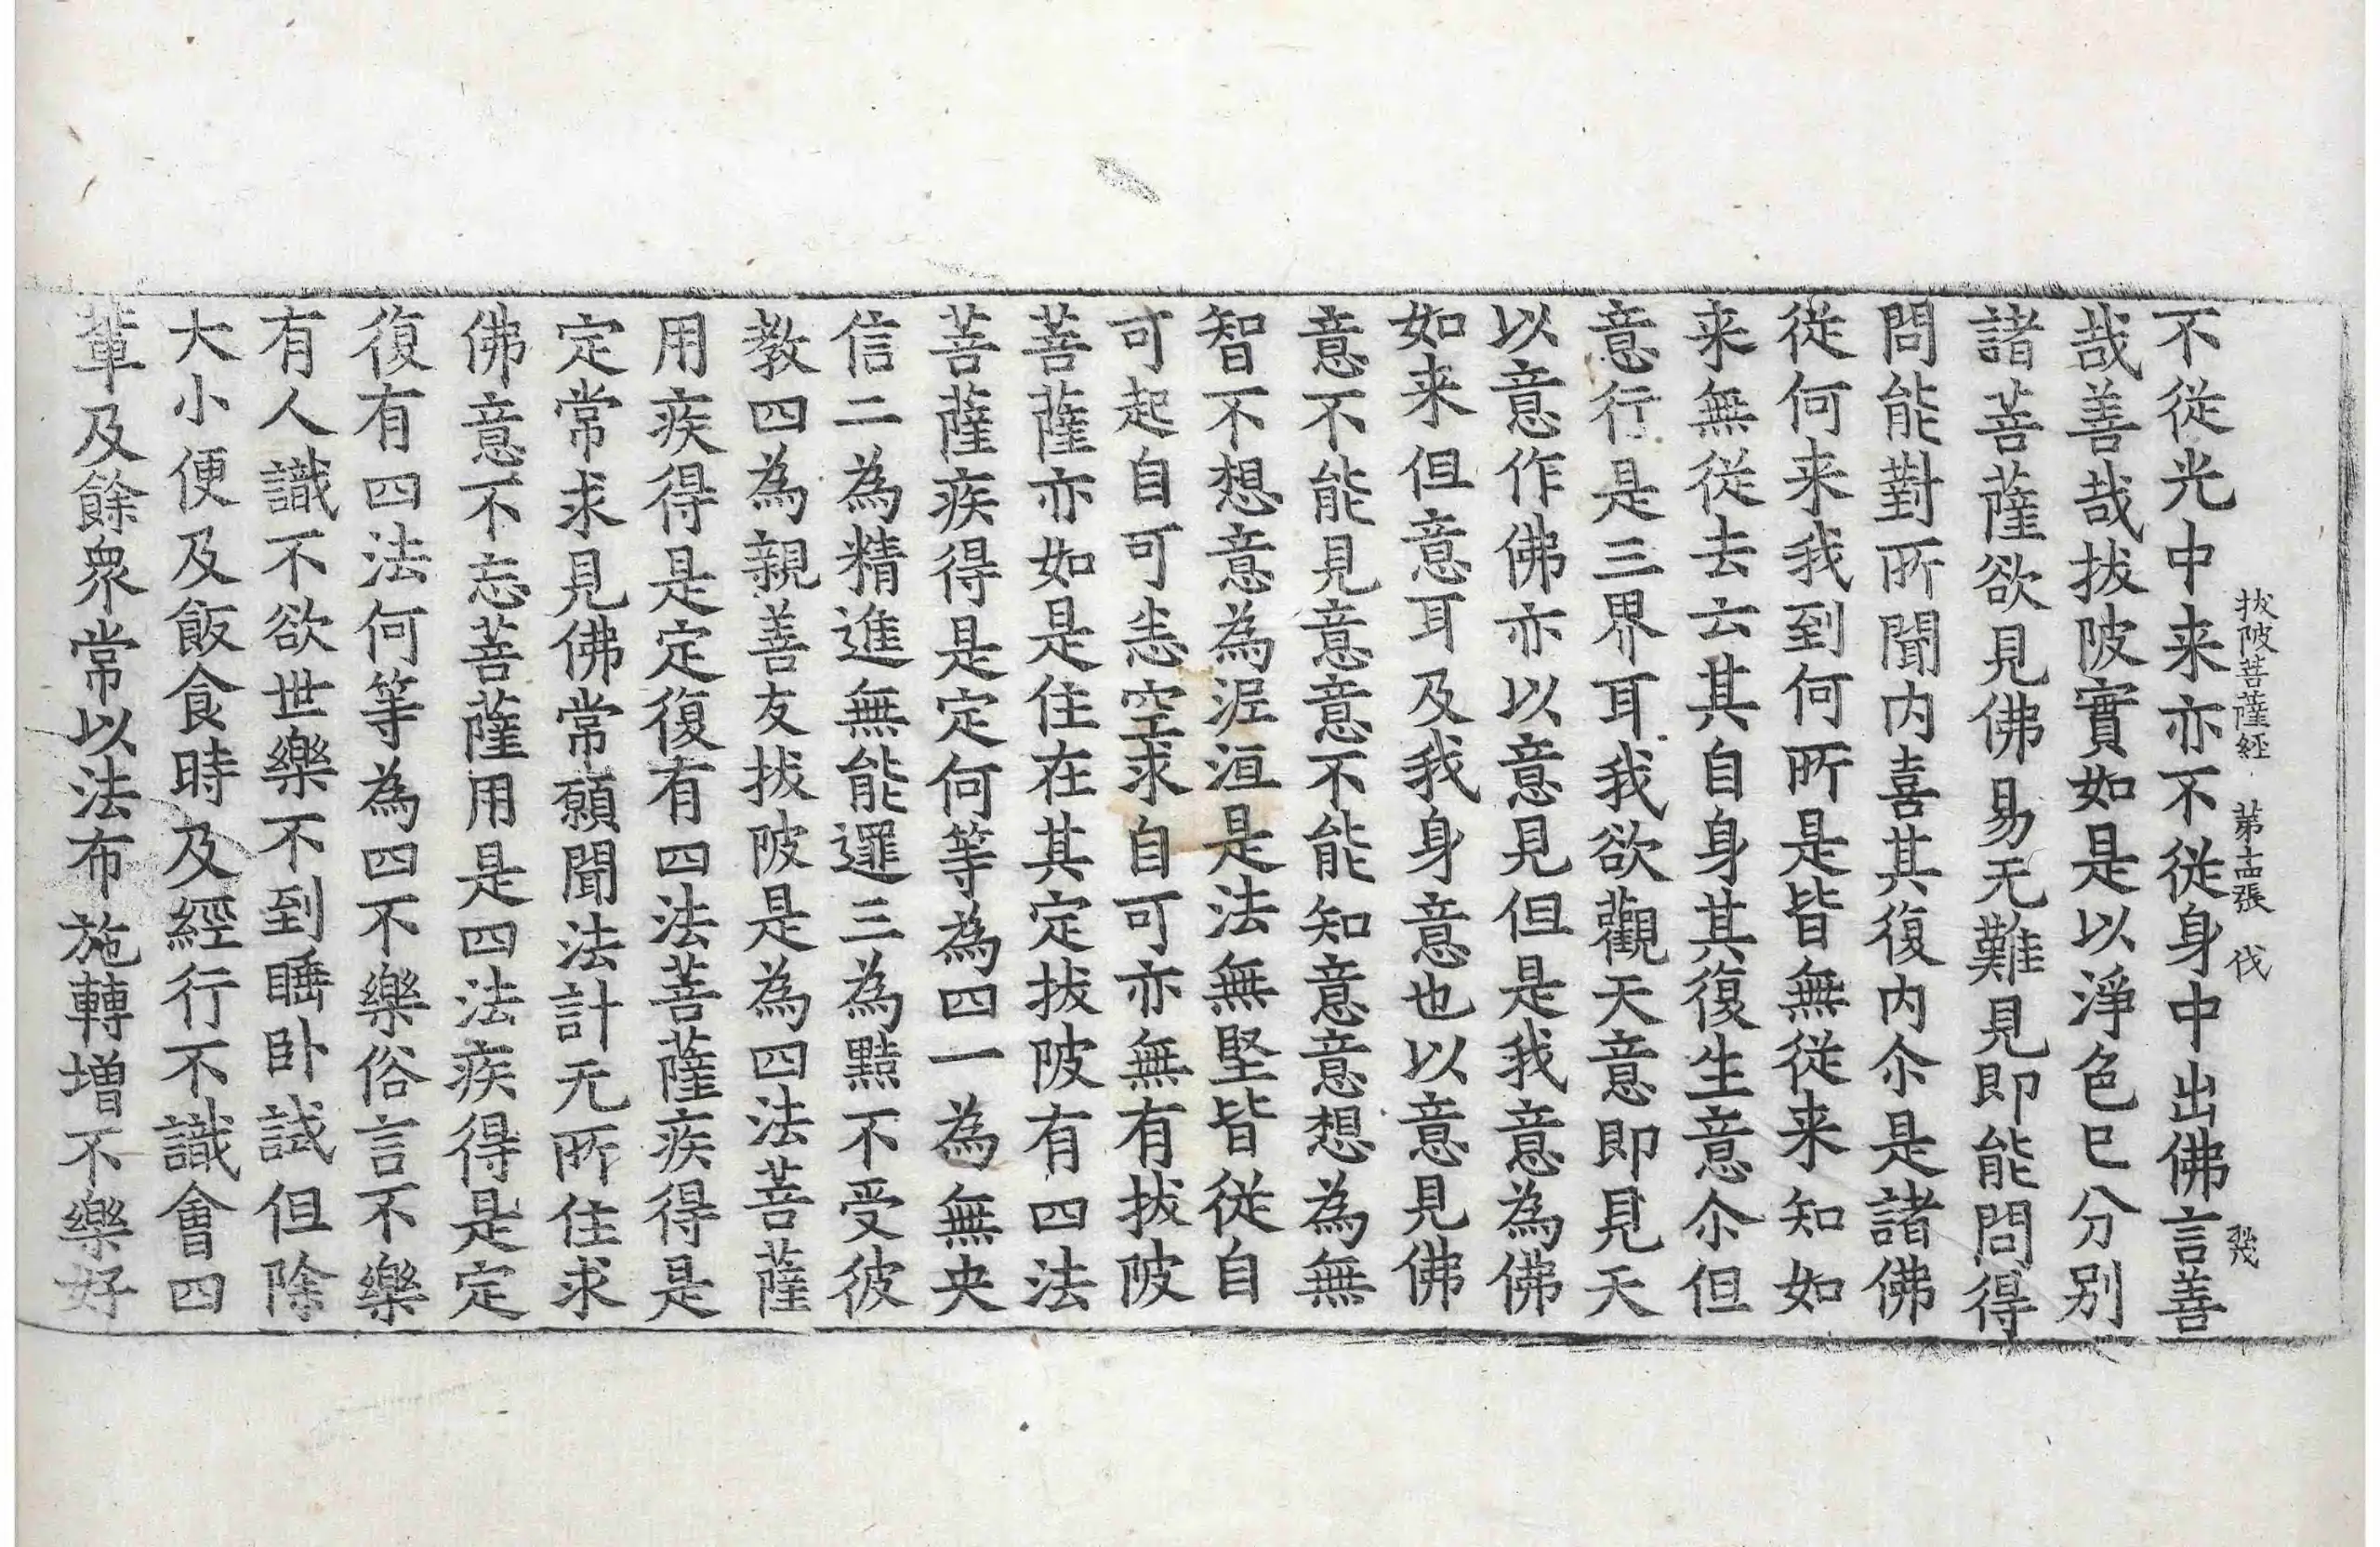 拔陂菩薩経 苐十四張 伐
不從光中来亦不從身中出佛言善
哉善哉拔陂實如是以淨色已分别
諸菩薩欲見佛易无難見即能問得
問能對所聞内喜其復内尒是諸佛
從何来我到何所是皆無從来知如
来無從去云其自身其復生意尒但
意行是三界耳我欲觀天意即見天
以意作佛亦以意見但是我意為佛
如来但意耳及我身意也以意見佛
意不能見意意不能知意意想為無
智不想意為泥洹是法無堅皆從自
可起自可恚空求自可亦無有拔陂
菩薩亦如是住在其定拔陂有四法
菩薩疾得是定何等為四一為無央
信二為精進無能邏三為黠不受彼
教四為親善友拔陂是為四法菩薩
用疾得是定復有四法菩薩疾得是
定常求見佛常願聞法計无所住求
佛意不忘菩薩用是四法疾得是定
復有四法何等為四不樂俗言不樂
有人識不欲世樂不到睡卧試但除
大小便及飯食時及經行不識會四
輩及餘衆常以法布施轉增不樂好